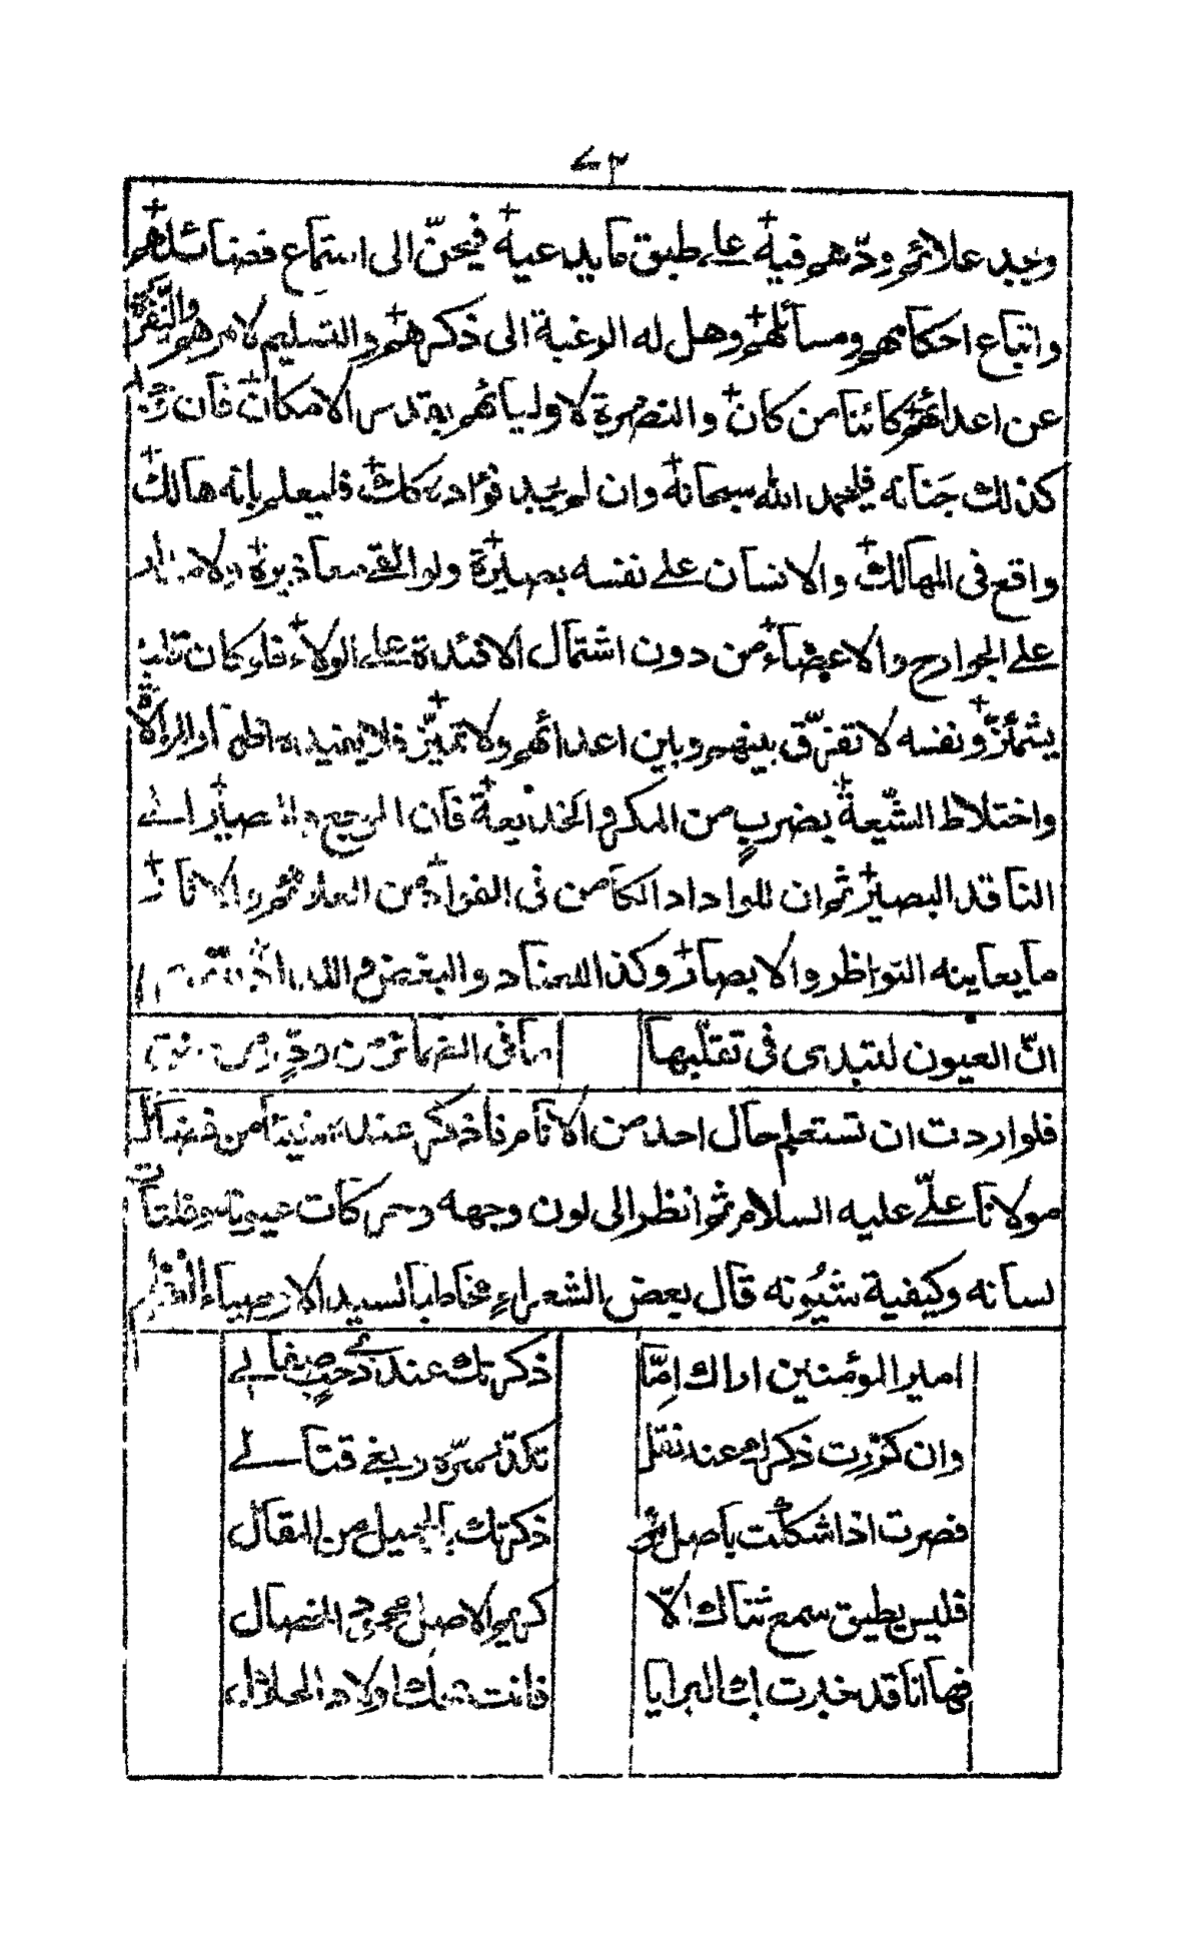 ٧٣
وجد علائم ودّهم فيه على طبق ما يدعيه فيحنّ الى استماع فضائلهم
واتباع احكامهم ومسائلهم وهل له الرغبة الى ذكرهم والتسليم لامرهم والنّفرة
عن اعدائهم كائنا من كان والنصرة لاوليائهم بقدر الامكان فان وجد
كذلك جَنانه فليحمد الله سبحانه وان لم يجد فؤاده كذلك فليعلم بانه هالك
واقع فى المهالك والانسان على نفسه بصيرة ولو القى معاذيره ولا
على الجوارح والاعضاء من دون اشتمال الافئدة على الولاء فلو كان قلبه
يشمئزّ ونفسه لا تفرّق بينهم وبين اعدائهم ولا تميّز فلا يفيده اظهار الولاء
واختلاط الشّيعة بضربٍ من المكر والخديعة فان المرجع والمصير الى
الناقد البصير ثم ان للوداد الكامن فى الفؤاد من العلائم والاثار
ما يعاينه النواظر والابصار وكذا العناد والبغض
انّ العيون لتبدى فى تقلّبها ما فى الضمائر من ودٍّ ومن
فلو اردت ان تستعلم حال احد من الانام فاذكر عنده شيئا من فضائل
مولانا علىّ عليه السلام ثم انظر الى لون وجهه وحركات عيونه وفلتات
لسانه وكيفية شُيُونه قال بعض الشعراء مخاطبا لسيد الاوصياء
امير المؤمنين اراك اِمّا ذكرتك عند ذى حسبٍ صغا لى
وان كرّرت ذكرك عند نغل تكدّر سرّه وبغى قتالى
فصرت اذا شككت باصل مرء ذكرتك بالجميل من المقال
فليس يطيق سمع ثناك الّا كريم الاصل محمود الخصال
فها انا قد خبرت بك البرايا فانت محك اولاد الحلال